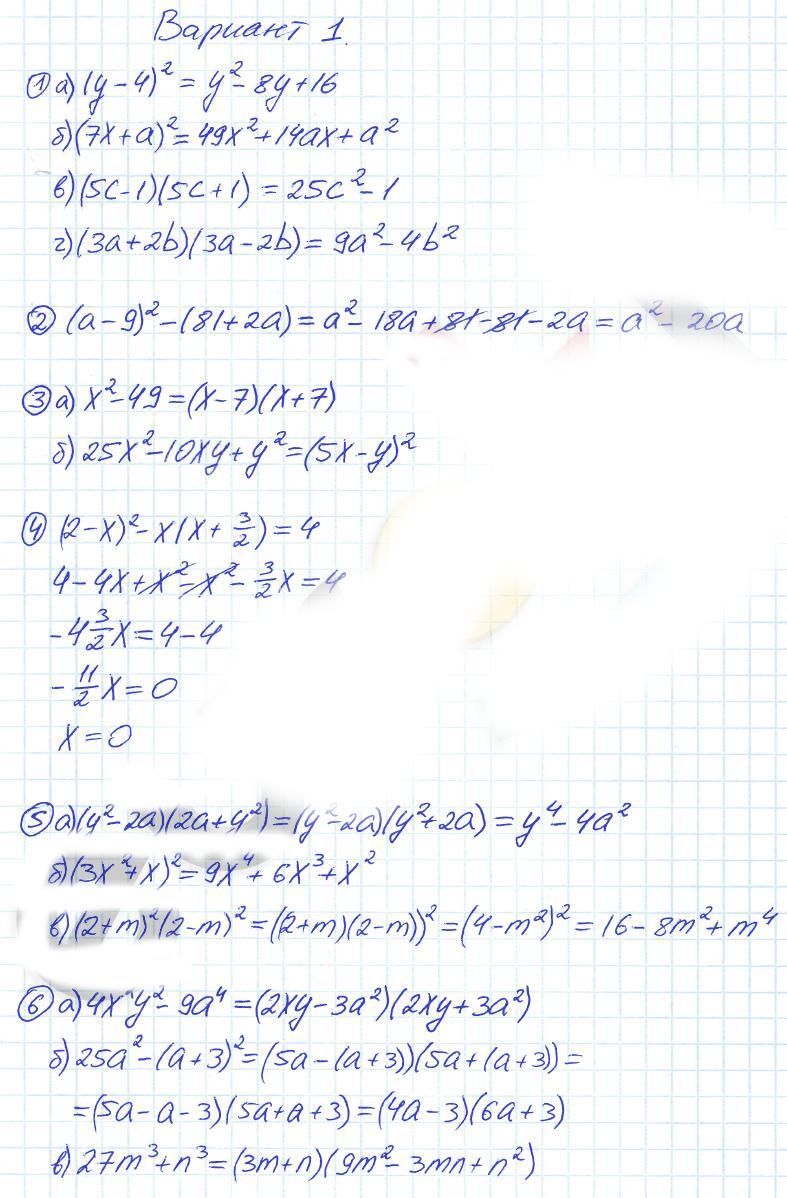 Вариант 1.
① а) (y - 4)² = y² - 8y + 16
б) (7x + a)² = 49x² + 14ax + a²
в) (5c - 1)(5c + 1) = 25c² - 1
г) (3a + 2b)(3a - 2b) = 9a² - 4b²
② (a - 9)² - (81 + 2a) = a² - 18a + 81 - 81 - 2a = a² - 20a
③ а) x² - 49 = (x - 7)(x + 7)
б) 25x² - 10xy + y² = (5x - y)²
④ (2 - x)² - x(x + 3/2) = 4
4 - 4x + x² - x² - 3/2 x = 4
- 4 3/2 x = 4 - 4
- 11/2 x = 0
x = 0
⑤ а) (y² - 2a)(2a + y²) = (y² - 2a)(y² + 2a) = y⁴ - 4a²
б) (3x² + x)² = 9x⁴ + 6x³ + x²
в) (2 + m)²(2 - m)² = (2 + m)(2 - m))² = (4 - m²)² = 16 - 8m² + m⁴
⑥ а) 4x²y² - 9a⁴ = (2xy - 3a²)(2xy + 3a²)
б) 25a² - (a + 3)² = (5a - (a + 3))(5a + (a + 3)) =
= (5a - a - 3)(5a + a + 3) = (4a - 3)(6a + 3)
в) 27m³ + n³ = (3m + n)(9m² - 3mn + n²)